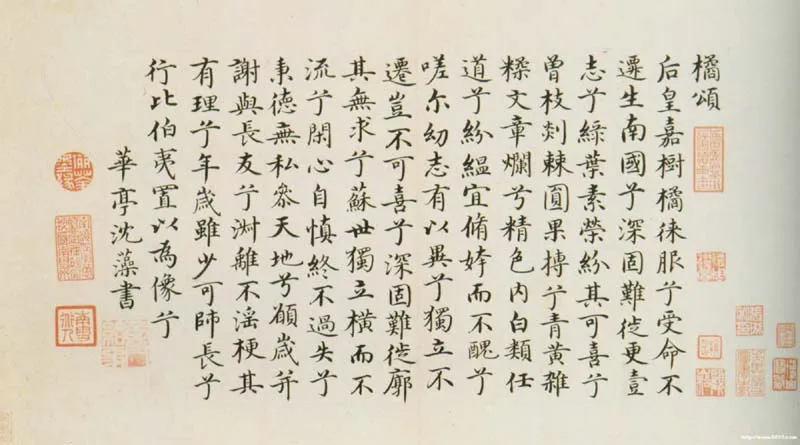 橘頌
后皇嘉樹橘徠服兮受命不
遷生南國兮深固難徙更壹
志兮綠葉素榮紛其可喜兮
曾枝剡棘圓果摶兮青黃雜
糅文章爛兮精色内白類任
道兮紛緼宜脩姱而不醜兮
嗟尔幼志有以異兮獨立不
遷豈不可喜兮深固難徙廓
其無求兮蘇世獨立橫而不
流兮閑心自慎終不過失兮
秉德無私參天地兮願歲并
謝與長友兮淑離不淫梗其
有理兮年歲雖少可師長兮
行比伯夷置以為像兮
華亭沈藻書